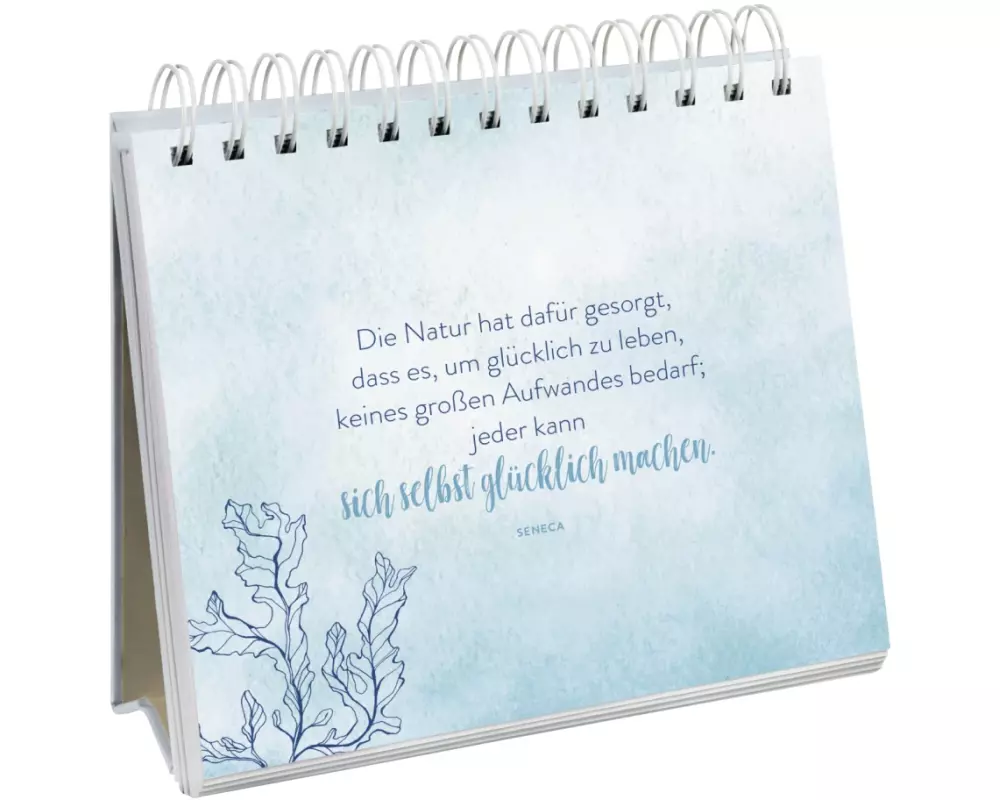 Die Natur hat dafür gesorgt,
dass es, um glücklich zu leben,
keines großen Aufwandes bedarf;
jeder kann
sich selbst glücklich machen.
SENECA